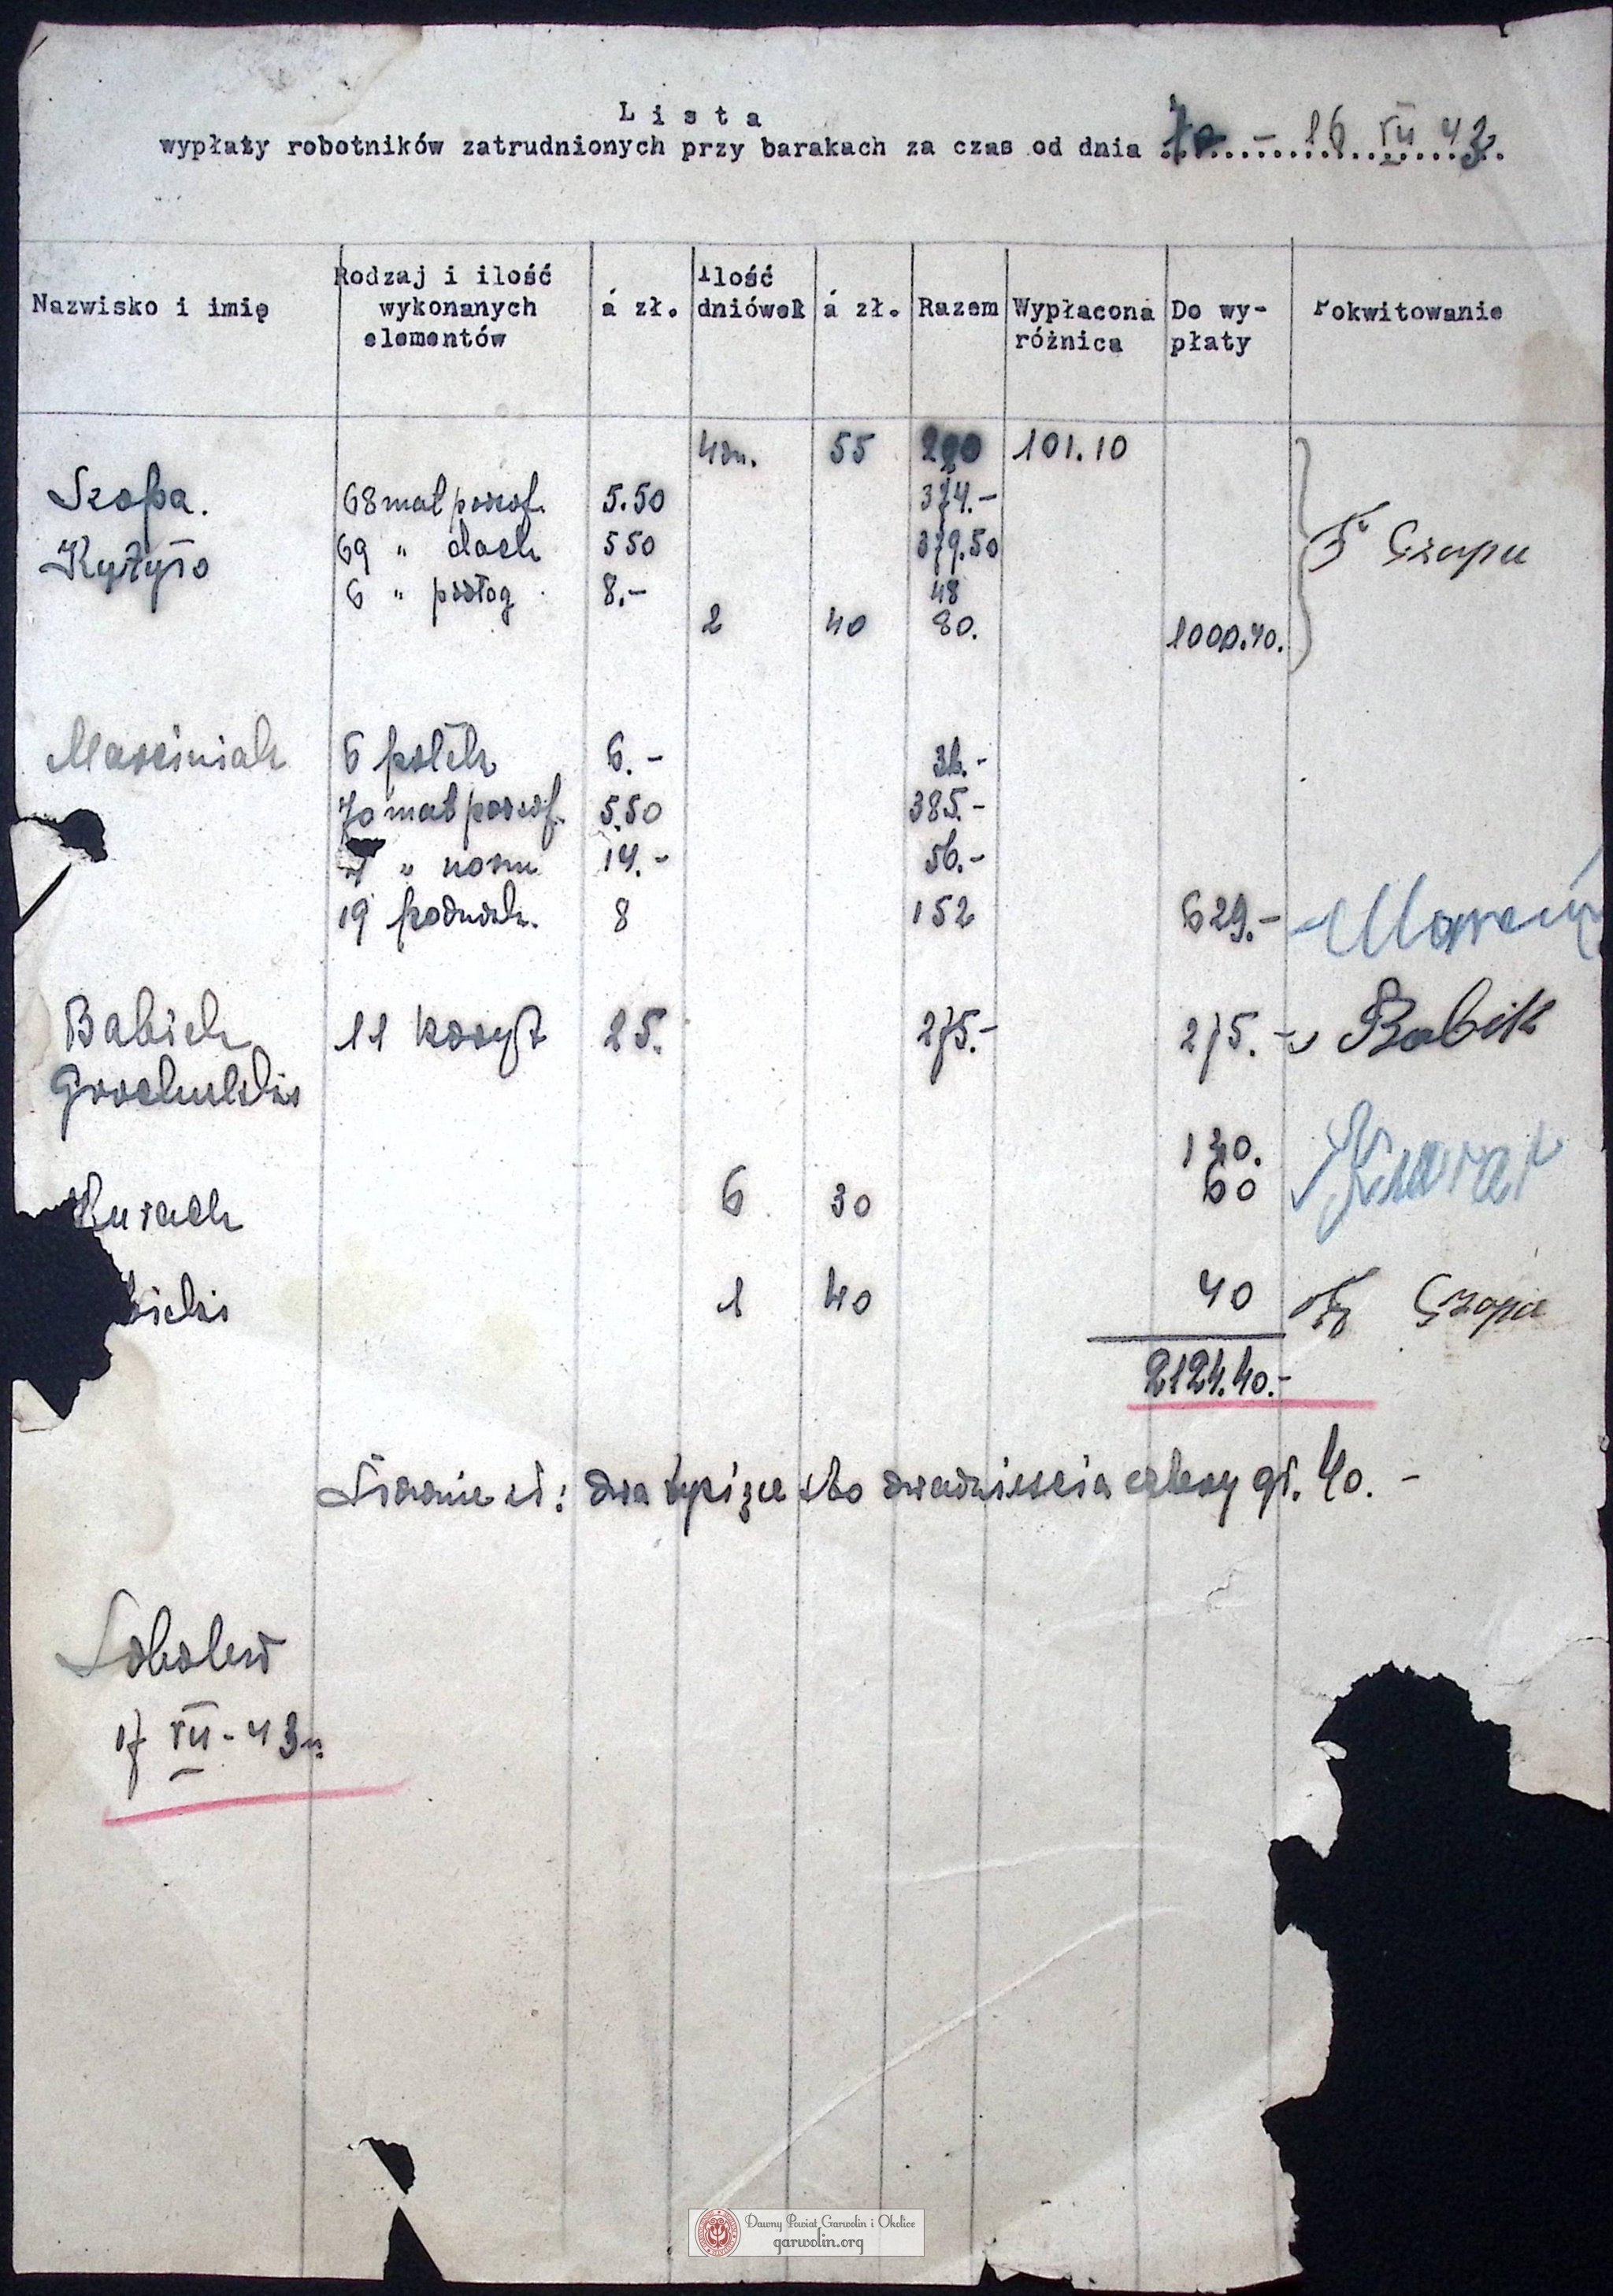 Lista
wypłaty robotników zatrudnionych przy barakach za czas od dnia - 16 VII 43
Nazwisko i imię | Rodzaj i ilość wykonanych elementów | á zł. | Ilość dniówek | á zł. | Razem | Wypłacona różnica | Do wypłaty | Pokwitowanie
4 dn. 55 220 101.10
Szopa. 68 mat 5.50 374.-
69 " dach 550 379.50 Fr Czapa
6 " podłog 8.- 48
2 40 80. 1000.40.
Marciniak 6 6.- 36.-
70 mat 5.50 385.-
" norm 14.- 56.-
19 8 152 629.-
Babick 11 25. 275.- 275.- Babik
120.
60
Kurach 6 30
bicki 1 40 40 Fr Czapa
2124.40.-
Słownie zł: dwa tysiące sto dwadzieścia cztery gr. 40.-
Sobolew
17 VII - 43 r.
Dawny Powiat Garwolin i Okolice
garwolin.org